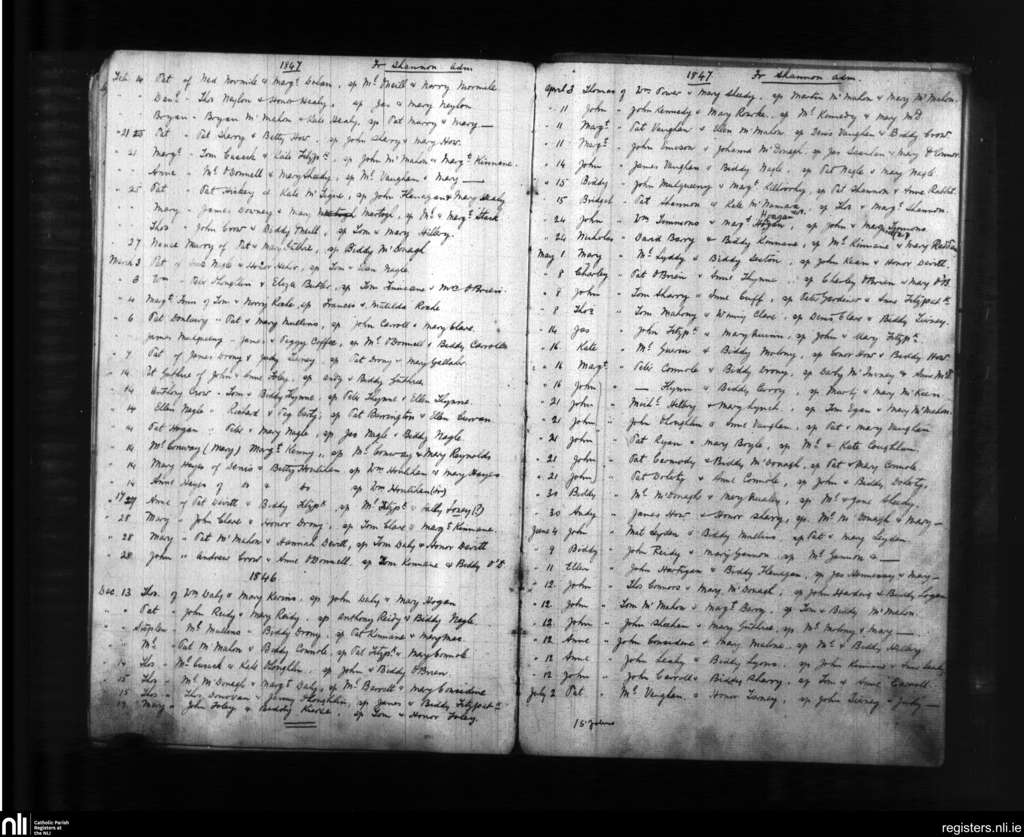 1847 Fr Shannon adm.
Feb. 14 Pat of Ned Normile & Marg.t sp M.l O'Neill & Norry Normile
" Dan.l " Thos Neylon & Honor Healy, sp Jas & Mary Neylon
" Bryan " Bryan McMahon & Kate Healy, sp Pat Murray & Mary —
" 21 Pat " Pat Sharry & Betty How, sp John Sharry & Mary How
" 21 Marg.t " Tom Cusack & Kate Fitzp.k sp John McMahon & Marg.t Kinnane
" Anne " M.l O'Donnell & Mary Sheedy, sp M.l Vaughan & Mary —
" 25 Pat " Pat Hickey & Kate McTigue, sp John Flanagan & Mary Healy
" Mary " James Downey & Mary sp M.l & Marg.t
" Thos " John Crow & Biddy O'Neill, sp Tom & Mary Hillery
" 27 Nance Murry of Pat & Mary Guthrie, sp Biddy McDonagh
March 3 Pat of Nagle & Honor Hehir, sp Tom & Nagle
" 3 Wm " O'Loughlin & Eliza Butler, sp Tom Kinnane & O'Brien
" 4 Marg.t of Tom & Norry Keane, sp Frances & Matilda Keane
" 6 Pat " Pat & Mary Mullins, sp John Carroll & Mary Clare
James Mulqueeny " James & Peggy Coffee, sp M.l O'Donnell & Biddy Carroll
" 7 Pat of James Drony & Judy sp Pat Drony & Mary
" 14 Pat Guthrie of John & Anne Foley, sp & Biddy Guthrie
" 14 Anthony Crow " Tom & Biddy Flynne, sp Pat Flynne & Ellen Flynne
" 14 Ellen Nagle " Richard & Peg sp Pat Barrington & Ellen Curran
" 14 Pat Hogan " & Mary Nagle, sp Jas Nagle & Biddy Nagle
" 14 M.l Conway (Mary) Marg.t Kenny, sp M.l Conway & Mary Reynolds
" 14 Mary Hayes of Denis & Betty Houlihan sp Wm Houlihan & Mary Hayes
" 14 Anne Hayes of Do & Do sp Wm Houlihan
" 17 Anne of Pat Devitt & Biddy Fitzp.k sp M.l Fitzp.k &
" 28 Mary " John Clare & Honor Drony, sp Tom Clare & Marg.t Kinnane
" 28 Mary " Pat McMahon & Hannah Devitt, sp Tom Daly & Honor Devitt
" 28 John " Andrew Crow & Anne O'Donnell, sp Tom Kinnane & Biddy
1846
Dec. 13 Thos. of Wm Daly & Mary Kerins, sp John Daly & Mary Hogan
" Pat " John Reidy & Mary Reidy, sp Anthony Reidy & Biddy Nagle
" Stephen " M.l Mullins & Biddy Drony, sp Pat Kinnane & Mary
" M.l " Pat McMahon & Biddy Connole, sp Pat Fitzp.k & Mary Connole
" 14 Thos " M.l Cusack & Kate O'Loghlin, sp John & Biddy O'Brien
" 15 Thos " M.l McDonagh & Marg.t Daly, sp M.l Barrett & Mary Considine
" 15 Thos " Thos Donovan & Jenny O'Loughlin, sp James & Biddy Fitzpat.k
" 17 Mary " John Foley & Biddy sp Tom & Honor Foley
1847 Fr Shannon adm.
April 3 Thomas of Wm Power & Mary Sheedy, sp Martin McMahon & Mary McMahon
" 11 John " John Kennedy & Mary Rourke, sp M.l Kennedy & Mary
" 11 Marg.t " Pat Vaughan & Ellen McMahon, sp Denis Vaughan & Biddy Crow
" 11 Marg.t " John & Johanna McDonagh, sp Jas Scanlan & Mary O'Connor
" 14 John " James Vaughan & Biddy Nagle, sp Pat Nagle & Mary Nagle
" 15 Biddy " John Mulqueeny & Marg.t Killoorhy, sp Pat Shannon & Anne
" 15 Bridget " Pat Shannon & Kate McNamara, sp Thos & Marg.t Shannon
" 24 John " Wm Timmons & Marg.t Hogan, sp John & Mary Timmons
" 24 Nicholas " David Barry & Biddy Kinnane, sp M.l Kinnane & Mary
May 1 Mary " M.l Lyddy & Biddy Sexton, sp John Kean & Honor Devitt
" 8 Charley " Pat O'Brien & Anne Flynne, sp Charley O'Brien & Mary O'B.
" 8 John " Tom Sharry & Anne Cuff, sp Peter Gardiner & Anne Fitzpat.k
" 8 Thos " Tom Mahony & Winny Clare, sp Denis Clare & Biddy Tierney
" 14 Jas " John Fitzp.k & Mary sp John & Mary Fitzp.k
" 16 Kate " M.l Guerin & Biddy Molony, sp Conor How & Biddy How
" 16 Marg.t " Connole & Biddy Drony, sp Darby McInerney & Anne
" 16 John " — Flynn & Biddy Curry, sp Marty & Mary McKean
" 21 John " Mich.l Hillery & Mary Lynch, sp Tom Egan & Mary McMahon
" 21 John " John O'Loughlin & Anne Vaughan, sp Pat & Mary Vaughan
" 21 John " Pat Ryan & Mary Boyle, sp M.l & Kate Coughlan
" 21 John " Pat Carmody & Biddy McDonagh, sp Pat & Mary Connole
" 21 John " Pat Dolety & Anne Connole, sp John & Biddy Dolety
" 30 Biddy " M.l McDonagh & Mary Nealy, sp M.l & Jane Sheedy
" 30 Andy " James How & Honor Sharry, sp M.l McDonagh & Mary —
June 4 John " Mat Leyden & Biddy Mullins, sp Pat & Mary Leyden
" 9 Biddy " John Reidy & Mary Gannon, sp M.l Gannon & —
" 11 Ellen " John Hartigan & Biddy Flanagan, sp Jas Hennessy & Mary —
" 12 John " Thos Connors & Mary McDonagh, sp John Hardin & Biddy Logan
" 12 John " Tom McMahon & Marg.t Barry, sp Tom & Biddy McMahon
" 12 John " John Sheehan & Mary Guthrie, sp M.l Molony & Mary —
" 12 Anne " John Considine & Mary Malone, sp M.l & Biddy Hillery
" 12 Anne " John Leahy & Biddy Lyons, sp John Kinnane & Anne Leahy
" 12 John " John Carroll & Biddy Sharry, sp Tim & Anne Carroll
July 2 Pat " M.l Vaughan & Honor Tierney, sp John Tierney & Judy —
nli
Catholic Parish
Registers at
the NLI
registers.nli.ie